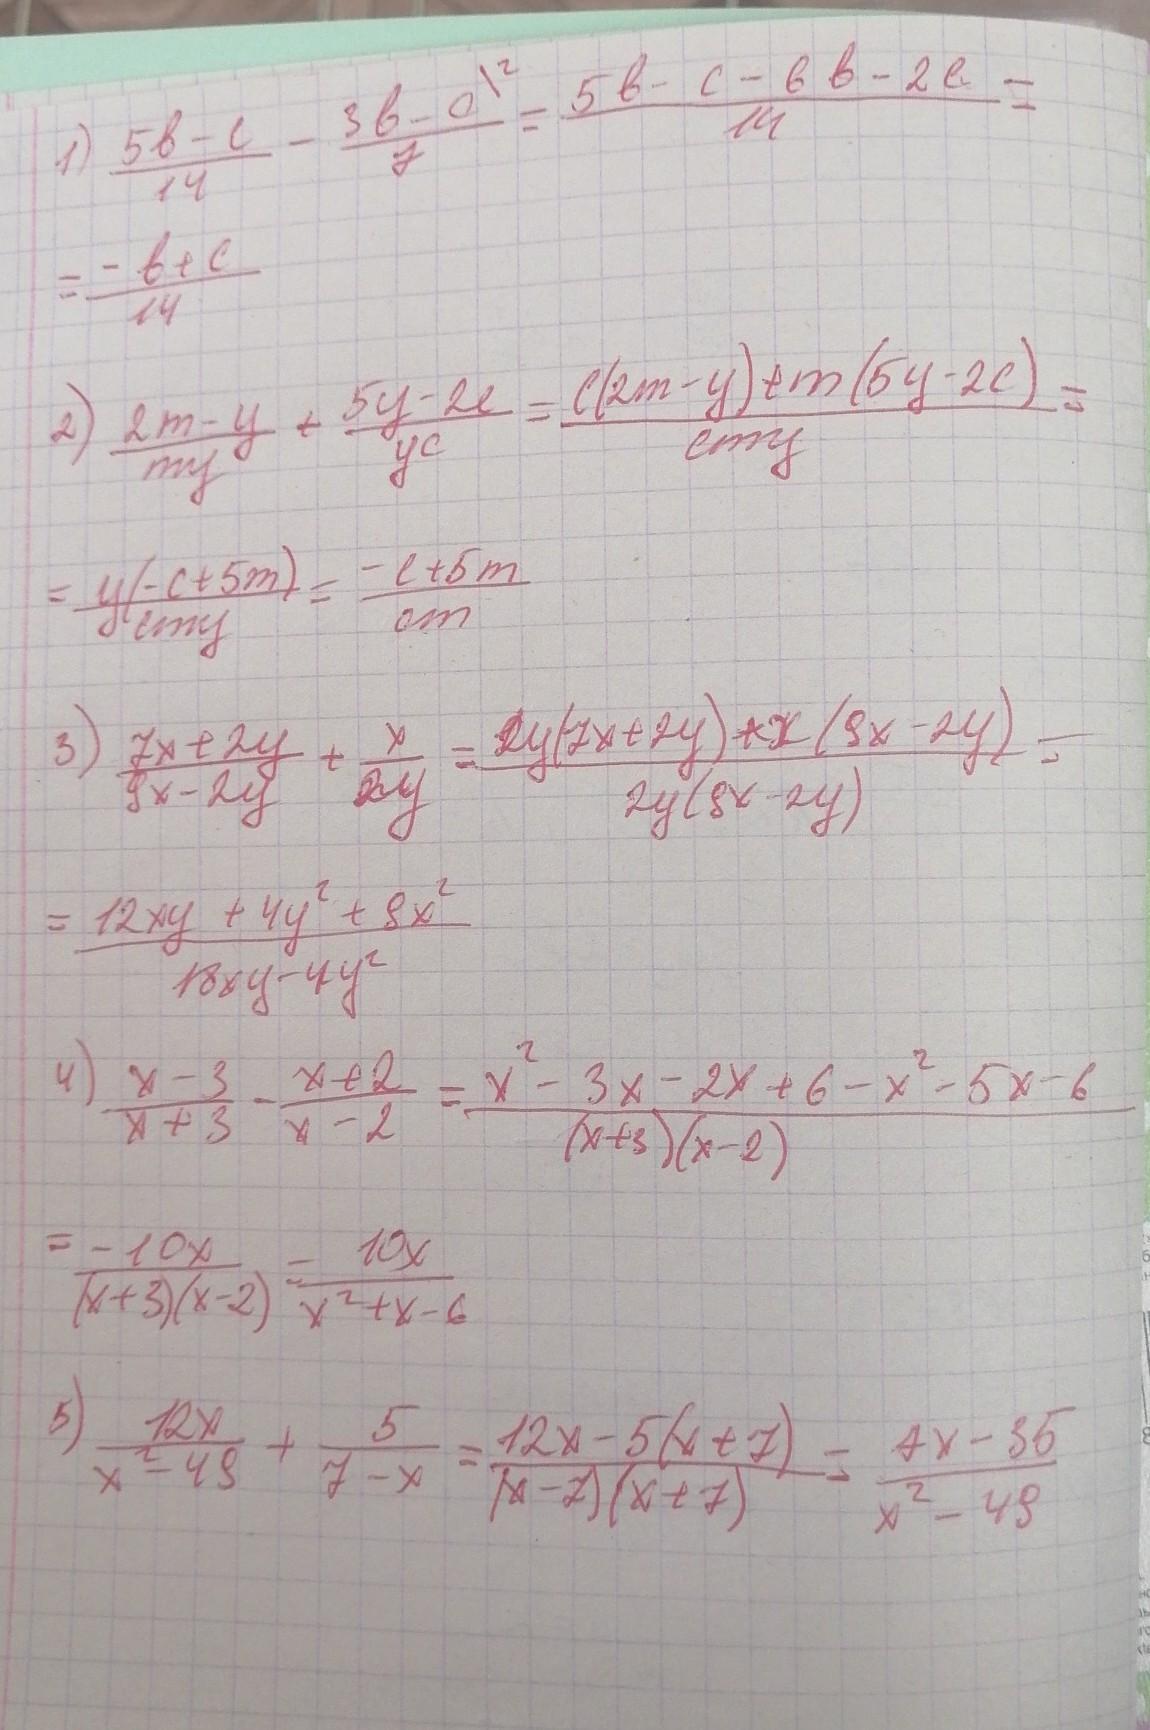 1) (5в-c)/14 - (3в-c\²)/7 = (5в-c-6в-2c)/14 =
= (-в+c)/14
2) (2m-y)/my + (5y-2c)/yc = (c(2m-y)+m(5y-2c))/cmy =
= y(-c+5m)/cmy = (-c+5m)/cm
3) (7x+2y)/(9x-2y) + x/2y = (2y(7x+2y)+x(9x-2y))/2y(9x-2y) =
= (12xy+4y²+9x²)/(18xy-4y²)
4) (x-3)/(x+3) - (x+2)/(x-2) = (x²-3x-2x+6-x²-5x-6)/(x+3)(x-2)
= -10x/(x+3)(x-2) = 10x/(x²+x-6)
5) 12x/(x²-49) + 5/(7-x) = (12x-5(x+7))/(x-7)(x+7) = (7x-35)/(x²-49)